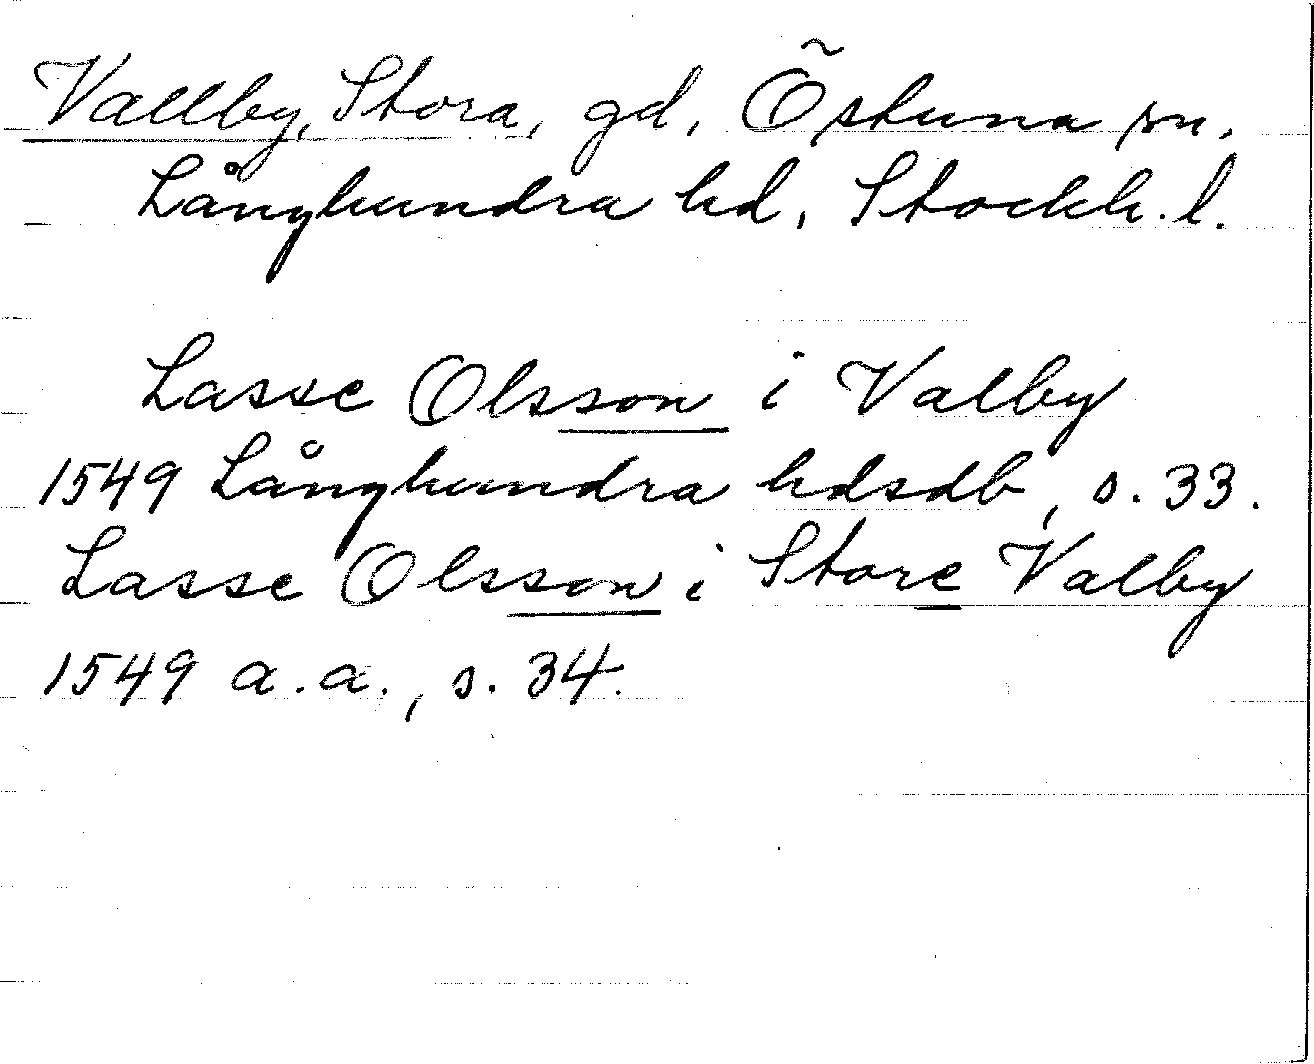 Vallby, Stora, gd, Östuna sn.
Långhundra hd, Stockh. l.
Lasse Olsson i Valby
1549 Långhundra hdsdb, s. 33.
Lasse Olsson i Store Valby
1549 a.a., s. 34.